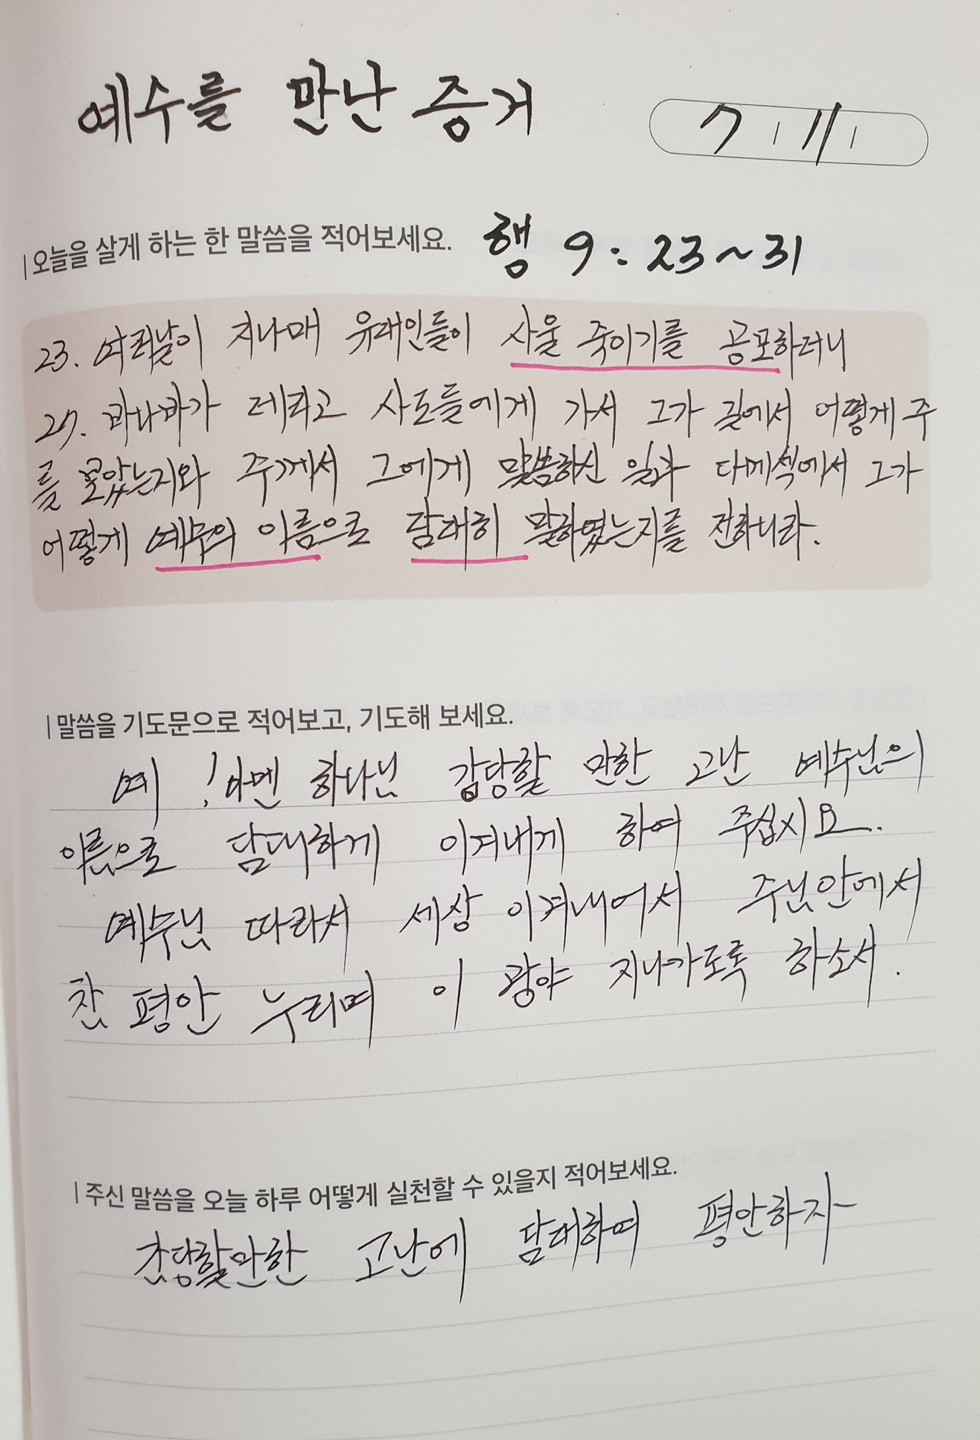 예수를 만난 증거
7 11
오늘을 살게 하는 한 말씀을 적어보세요. 행 9:23~31
23. 여러날이 지나매 유대인들이 사울 죽이기를 공모하더니
27. 바나바가 데리고 사도들에게 가서 그가 길에서 어떻게 주
를 보았는지와 주께서 그에게 말씀하신 일과 다메섹에서 그가
어떻게 예수의 이름으로 담대히 말하였는지를 전하니라.
말씀을 기도문으로 적어보고, 기도해 보세요.
예! 아멘 하나님 감당할 만한 고난 예수님의
이름으로 담대하게 이겨내게 하여 주십시요.
예수님 따라서 세상 이겨내어서 주님안에서
참 평안 누리며 이 광야 지나가도록 하소서.
주신 말씀을 오늘 하루 어떻게 실천할 수 있을지 적어보세요.
감당할만한 고난에 담대하여 평안하자